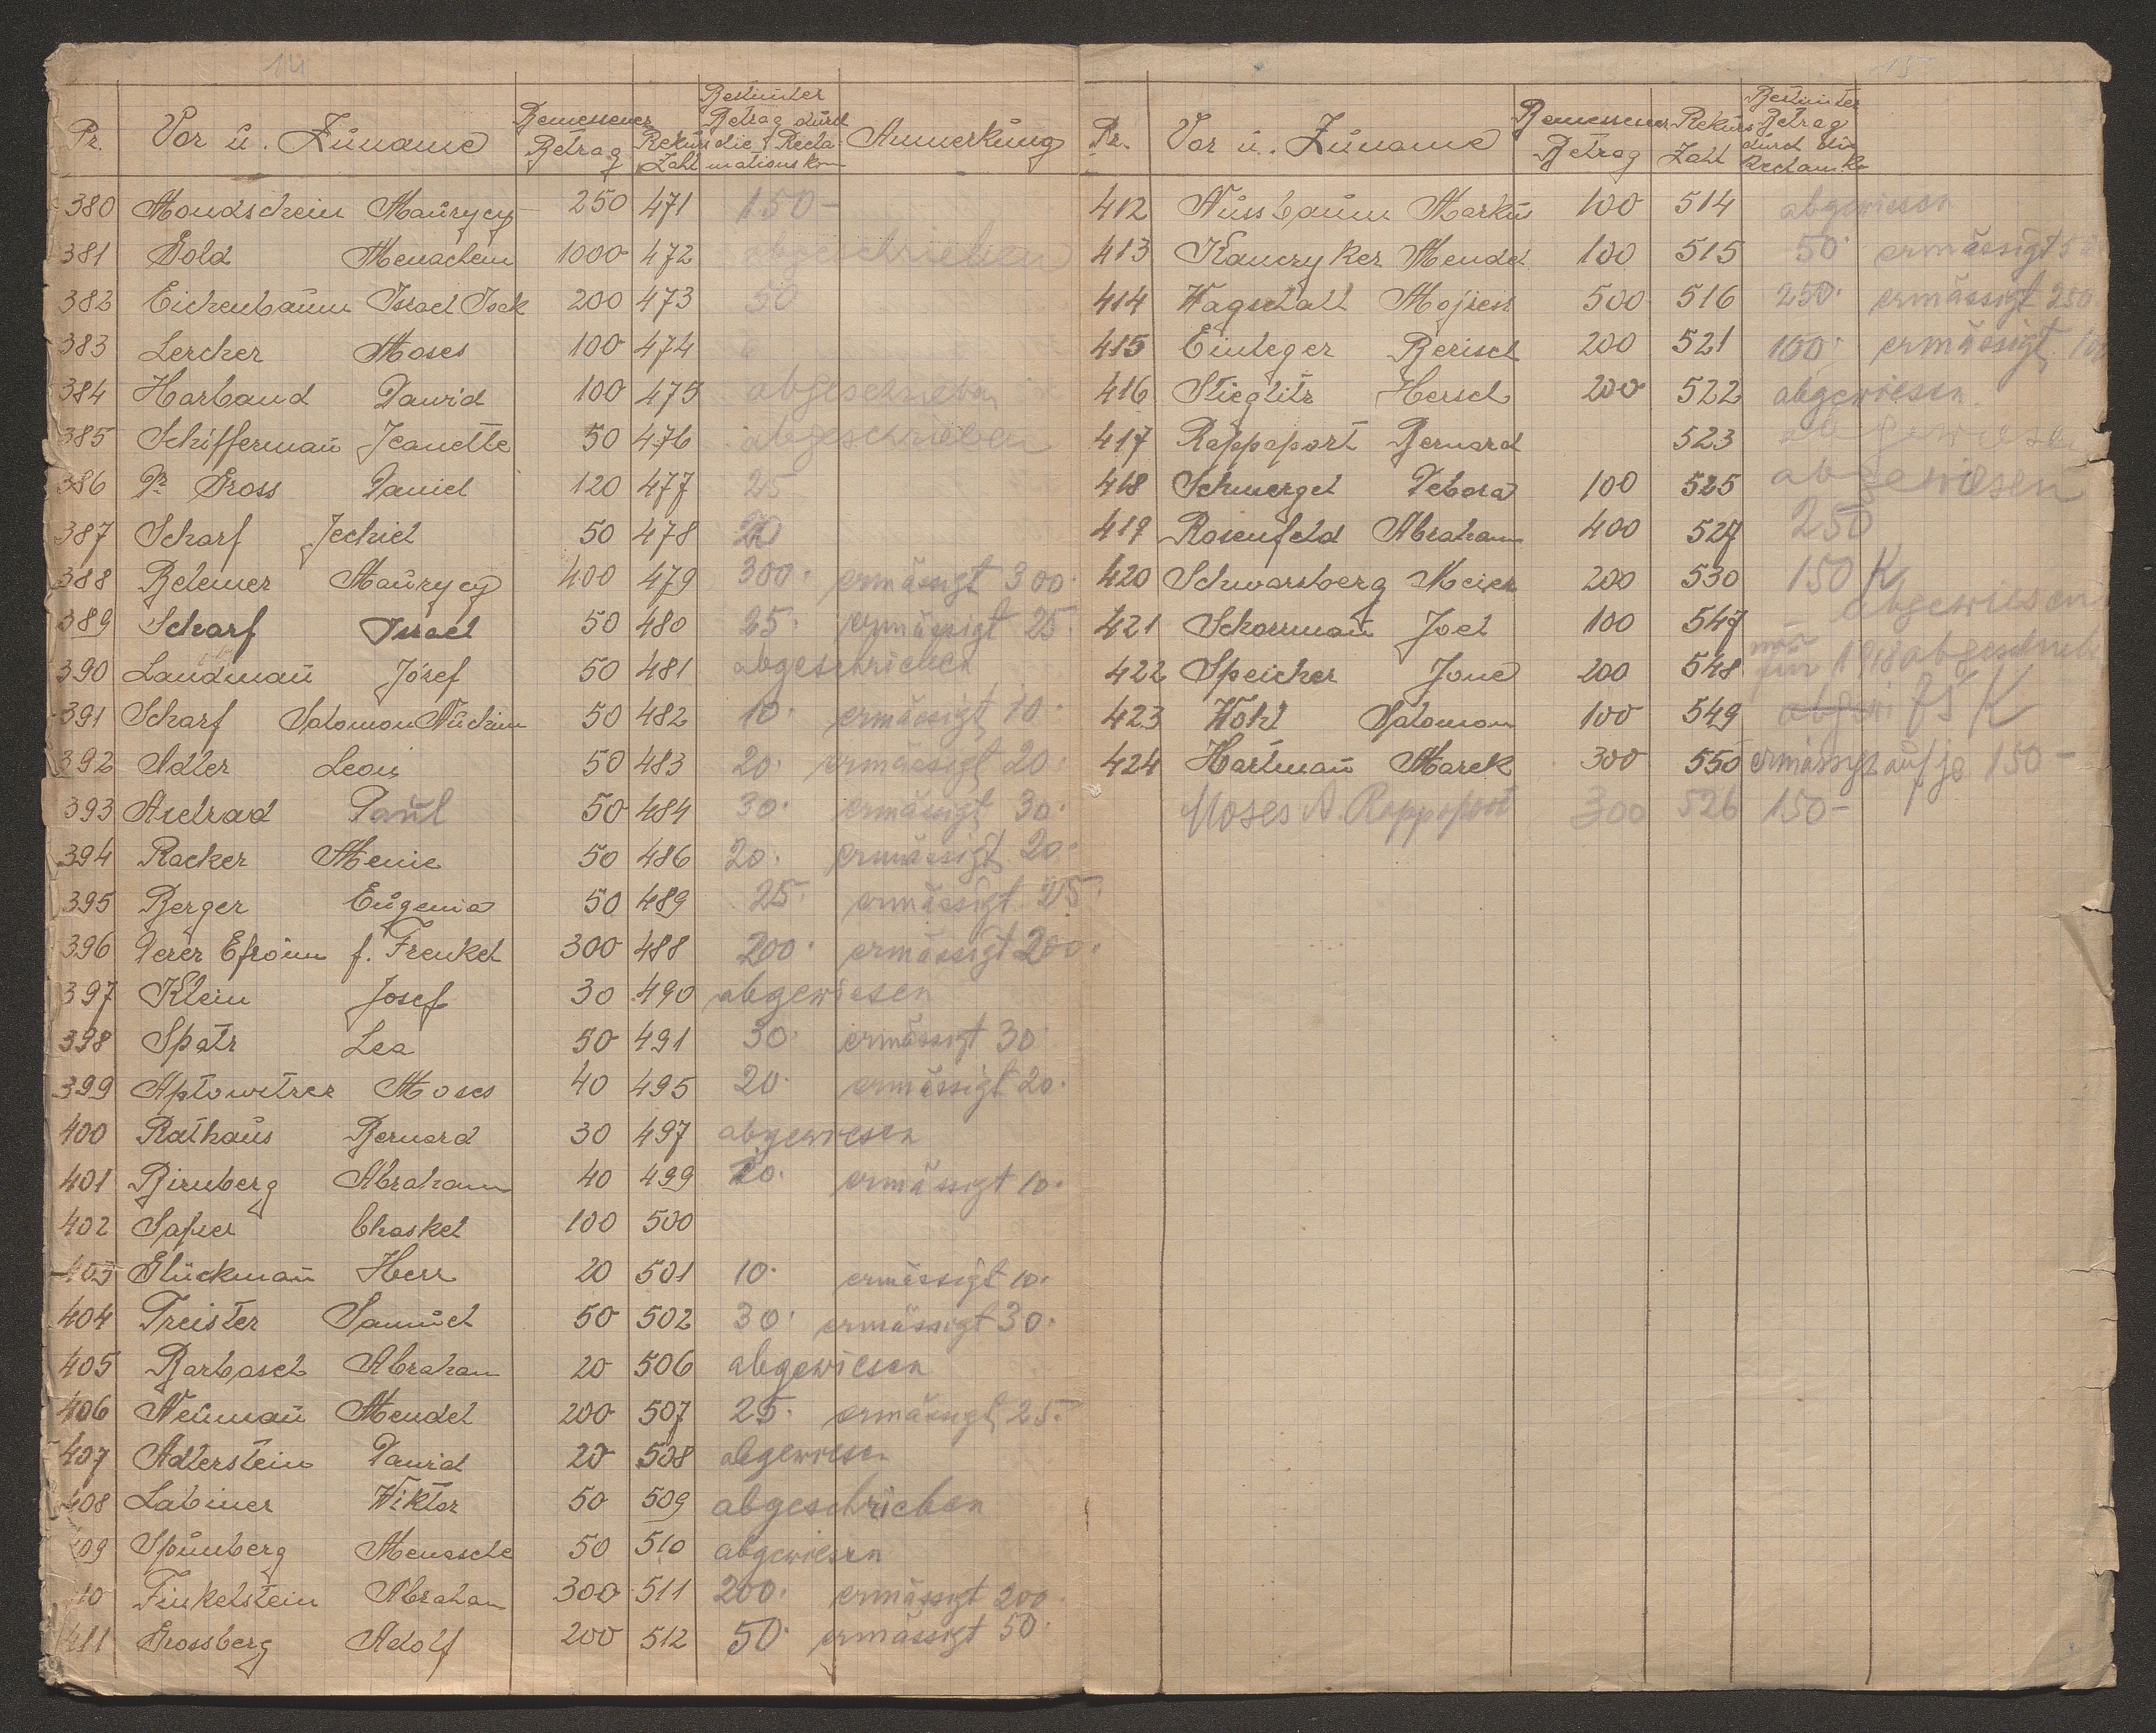 14
Pr. Vor u. Zuname Bemessener Betrag Rekurs Zahl Bestimter Betrag durch die Recla mations kom Anmerkung
380 Mondschein Maurycy 250 471 150 –
381 Gold Menachem 1000 472 abgeschrieben
382 Eichenbaum Israel Isek 200 473 50
383 Lercher Moses 100 474
384 Harband Dawid 100 475 abgeschrieben
385 Schifferman̄ Jeanette 50 476 abgeschrieben
386 Dr Gross Daniel 120 477 25
387 Scharf Jechiel 50 478 20
388 Belemer Maurycy 400 479 300. ermässigt 300.
389 Scharf Israel 50 480 25. ermässigt 25.
390 Landman̄ Józef 50 481 abgeschrieben
391 Scharf Salomon Nuchim 50 482 10. ermässigt 10.
392 Adler Leois 50 483 20. ermässigt 20.
393 Axelrad Paul 50 484 30. ermässigt 30.
394 Racker Menie 50 486 20. ermässigt 20.
395 Berger Eugenia 50 489 25. ermässigt 25.
396 Derer Efroim f. Frenkel 300 488 200. ermässigt 200.
397 Klein Josef 30 490 abgewiesen
398 Spatz Lea 50 491 30. ermässigt 30
399 Aptowitzer Moses 40 495 20. ermässigt 20.
400 Rathaus Bernard 30 497 abgewiesen
401 Birnberg Abraham 40 499 10. ermässigt 10.
402 Safier Chaskel 100 500
403 Glückman̄ Herz 20 501 10. ermässigt 10.
404 Treister Samuel 50 502 30. ermässigt 30.
405 Barbasch Abraham 20 506 abgewiesen
406 Neuman̄ Mendel 200 507 25. ermässigt 25.
407 Adlerstein Dawid 20 508 abgewiesen
408 Labiner Wiktor 50 509 abgeschrieben
409 Spinberg Menasche 50 510 abgewiesen
410 Finkelstein Abraham 300 511 200. ermässigt 200.
411 Grossberg Adolf 200 512 50. ermässigt 50.
15
Pr. Vor u. Zuname Bemessener Betrag Rekurs Zahl Bestimter Betrag durch die Reclam. Ko
412 Nussbaum Markus 100 514 abgewiesen
413 Kanczyker Mendel 100 515 50. ermässigt 5
414 Wagschall Mojżesz 500 516 250. ermässigt 250.
415 Einleger Berisch 200 521 100. ermässigt 100
416 Stieglitz Hersch 200 522 abgewiesen.
417 Rappaport Bernard 523 abgewiesen
418 Schmergel Debora 100 525 abgewiesen
419 Rosenfeld Abraham 400 527 250
420 Schwarzberg Meier 200 530 150 K
421 Schorrman̄ Joel 100 547 abgewiesen
422 Speicher Jone 200 548 nur für 1918 abgeschrieb
423 Wohl Salomon 100 549 abgewi 75 K
424 Hartman̄ Marek 300 550 ermässigt auf je 150 –
Moses A. Rappaport 300 526 150 –